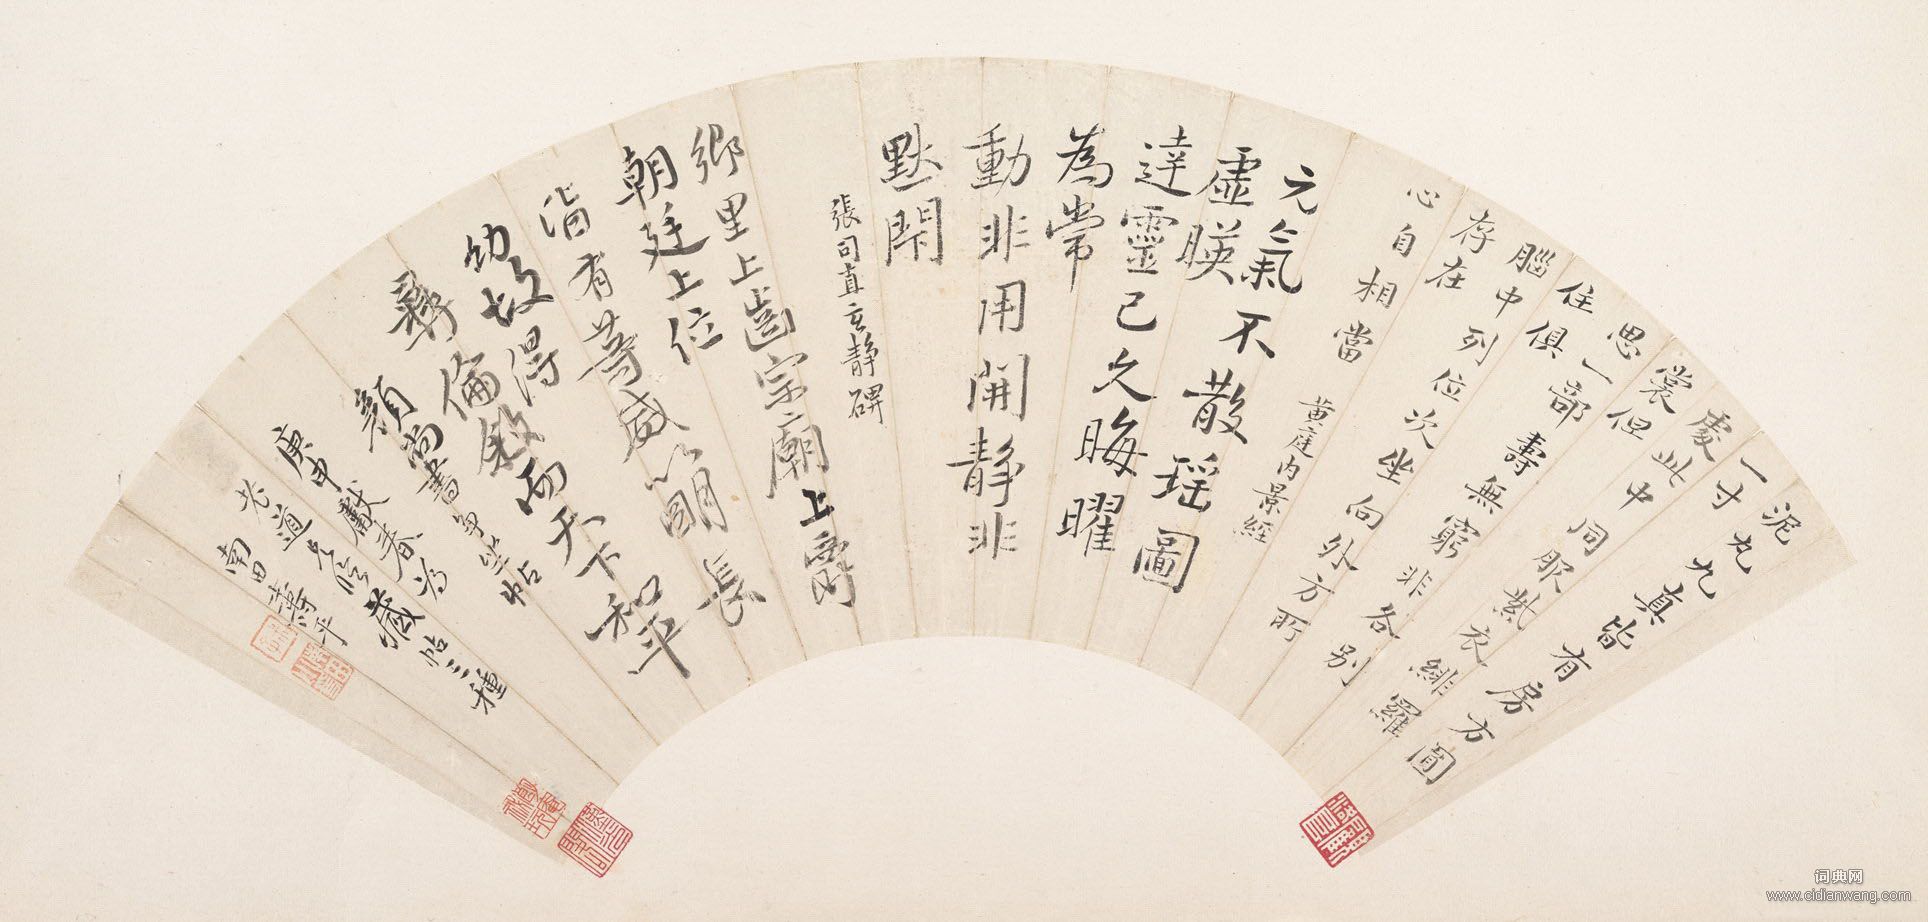 泥丸九真皆有房方圓
一寸
處此中同服紫衣緋羅
裳但
思一部壽無窮非各別
住俱
腦中列位次坐向外方所
存在
心自相當
黄庭内景經
元氣不散瑶圖
虛暎
達靈已久晦曜
為常
動非用開靜非
黙閇
張司直玄靜碑
鄉里上齒宗廟上爵
朝廷上位
皆有等威以明長
幼故得
彝倫敘而天下和平
顏尚書爭坐帖
庚申獻春為
老道兄臨藏帖三種
南田壽平
词典网
www.cidianwang.com